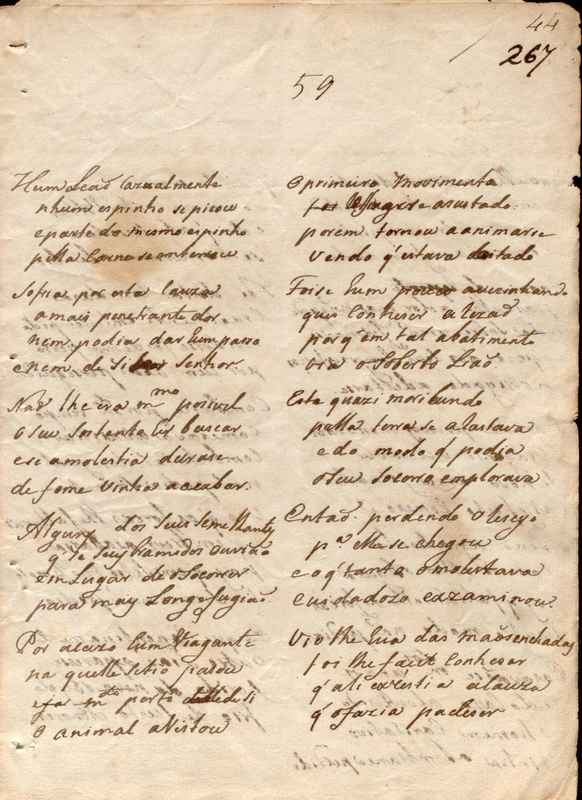 44
267
59
Hum Leaõ Cazualmente
nhum espinho se picou
e parte do mesmo espinho
pella Carne se enterrou
Sofria por esta Cauza
a mais penetrante dor
nem podia dar hum passo
e nem de si Senhor.
Naõ lhe era mmo possivel
o seu sostento hir buscar
e se a molestia durase
de fome vinha acabar.
Alguns dos seus Semelhantes
q' Se Seus bramidos ouviaõ
em Lugar de o Socorrer
para mais Longe fugiaõ
Por acazo hum Viagante
na quelle Sitio pasou
e ja mto perto de si
o animal avistou
O primeiro Movimento
foi asustado
porem tornou a animarse
vendo q' estava deitado
Foi se hum avezinhando
quis conheser a lezaõ
porq' em tal abatimento
via o Soberbo Liaõ
Este quazi moribundo
pella terra se a Rastava
e do modo q' podia
o seu Socorro emplorava
Entaõ perdendo o
pa elle se chegou
e o q' tanto o molestava
cuidadozo eazaminou.
Vio lhe hua das maõs enchadas
foi lhe facil Conheser
q' ali exestia a Cauza
q' o fazia padeser